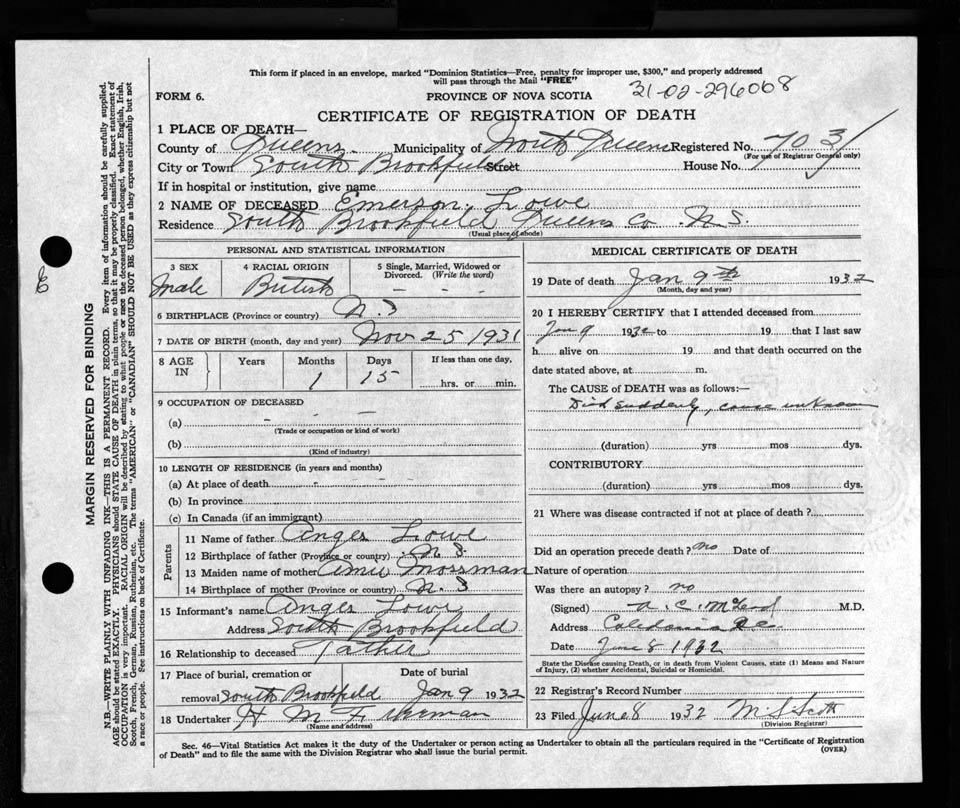 This form if placed in an envelope, marked "Dominion Statistics—Free, penalty for improper use, $300," and properly addressed
will pass through the Mail "FREE"
31-02-296068
FORM 6.
PROVINCE OF NOVA SCOTIA
CERTIFICATE OF REGISTRATION OF DEATH
1 PLACE OF DEATH—
County of Queens Municipality of North Queens Registered No. 703
(For use of Registrar General only)
City or Town South Brookfield Street House No.
If in hospital or institution, give name
2 NAME OF DECEASED Emerson Lowe
Residence South Brookfield Queens Co N.S.
(Usual place of abode)
PERSONAL AND STATISTICAL INFORMATION
3 SEX 4 RACIAL ORIGIN 5 Single, Married, Widowed or
Divorced. (Write the word)
Male British - - -
6 BIRTHPLACE (Province or country) N.S
7 DATE OF BIRTH (month, day and year) Nov 25 1931
8 AGE IN Years Months Days If less than one day,
1 15 hrs. or min.
9 OCCUPATION OF DECEASED
(a) - - -
(Trade or occupation or kind of work)
(b)
(Kind of industry)
10 LENGTH OF RESIDENCE (in years and months)
(a) At place of death - - -
(b) In province
(c) In Canada (if an immigrant)
Parents
11 Name of father Anges Lowe
12 Birthplace of father (Province or country) N S.
13 Maiden name of mother Mossman
14 Birthplace of mother (Province or country) N. S
15 Informant's name Anges Lowe
Address South Brookfield
16 Relationship to deceased Father
17 Place of burial, cremation or Date of burial
removal South Brookfield Jan 9 1932
18 Undertaker H M F
(Name and address)
MEDICAL CERTIFICATE OF DEATH
19 Date of death Jan 9th 1932
(Month, day and year)
20 I HEREBY CERTIFY that I attended deceased from
Jan 9 1932 to 19 that I last saw
h alive on 19 and that death occurred on the
date stated above, at m.
The CAUSE of DEATH was as follows:—
Died suddenly, cause unknown
(duration) yrs mos dys.
CONTRIBUTORY
(duration) yrs mos dys.
21 Where was disease contracted if not at place of death?
Did an operation precede death? no Date of
Nature of operation
Was there an autopsy? no
(Signed) A. C. McLeod M.D.
Address Caledonia Q.C.
Date June 8 1932
State the Disease causing Death, or in death from Violent Causes, state (1) Means and Nature
of Injury, (2) whether Accidental, Suicidal or Homicidal.
22 Registrar's Record Number
23 Filed June 8 1932 M S Scott
(Division Registrar)
Sec. 46—Vital Statistics Act makes it the duty of the Undertaker or person acting as Undertaker to obtain all the particulars required in the "Certificate of Registration
of Death" and to file the same with the Division Registrar who shall issue the burial permit.
(OVER)
MARGIN RESERVED FOR BINDING
N.B.—WRITE PLAINLY WITH UNFADING INK—THIS IS A PERMANENT RECORD. Every item of information should be carefully supplied.
AGE should be stated EXACTLY. PHYSICIANS should STATE CAUSE OF DEATH in plain terms, so that it may be properly classified. Exact statement of
OCCUPATION is very important. RACIAL ORIGIN will be described by stating to what people or race the deceased person belonged, whether English, Irish,
Scotch, French, German, Russian, Ruthenian, etc. The terms "AMERICAN" or "CANADIAN" SHOULD NOT BE USED as they express citizenship but not
a race or people. See instructions on back of Certificate.